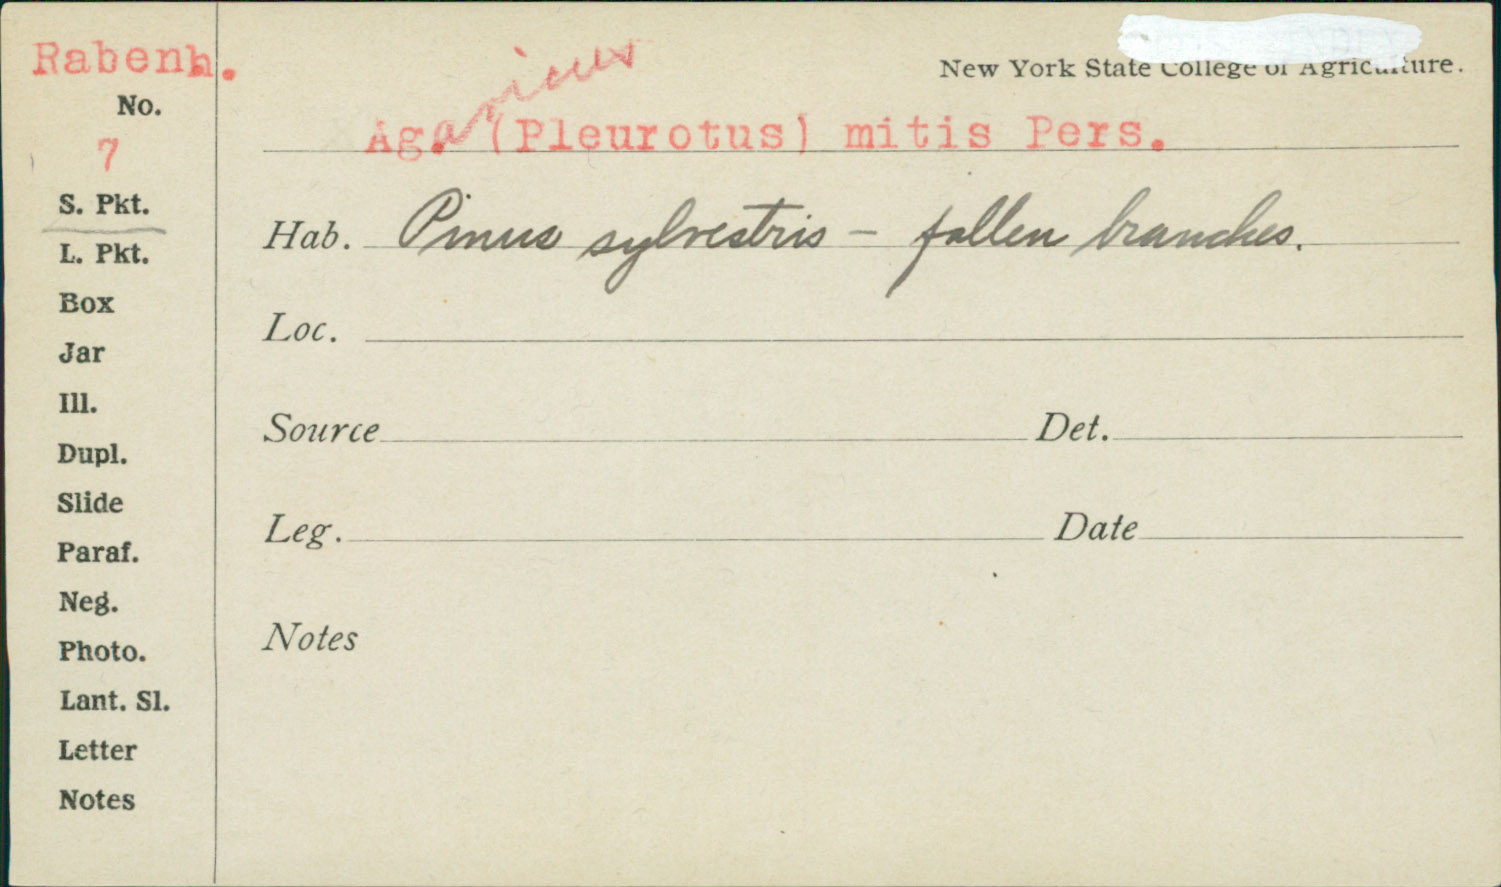 Rabenh.
New York State College of Agriculture.
No.
7
Agaricus (Pleurotus) mitis Pers.
S. Pkt.
Hab. Pinus sylvestris – fallen branches.
L. Pkt.
Box
Loc.
Jar
Ill.
Source Det.
Dupl.
Slide
Leg. Date
Paraf.
Neg.
Notes
Photo.
Lant. Sl.
Letter
Notes